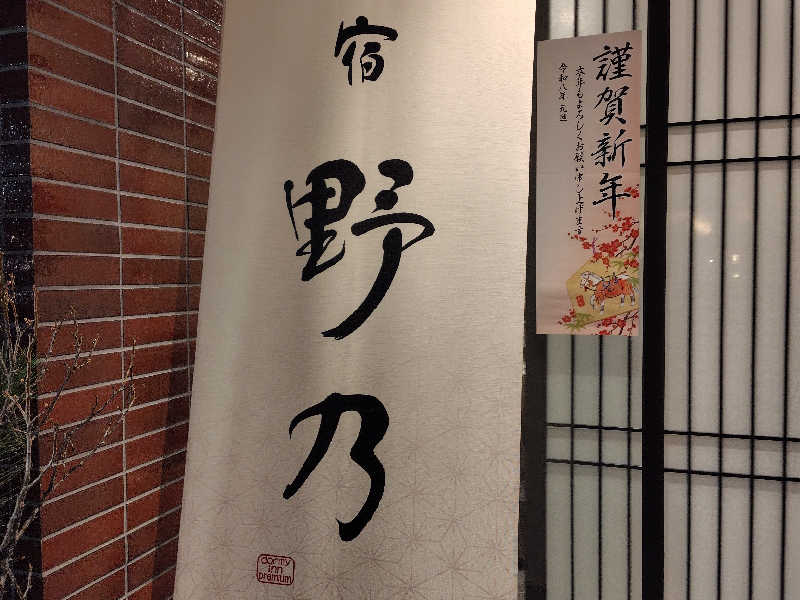 宿
野乃
dormy
inn
premium
謹賀新年
本年もよろしくお願い申し上げます
令和八年 元旦